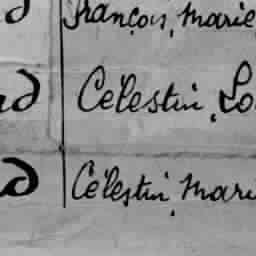 d François, Marie
nd Célestin, Lo
nd Célestin, Mari